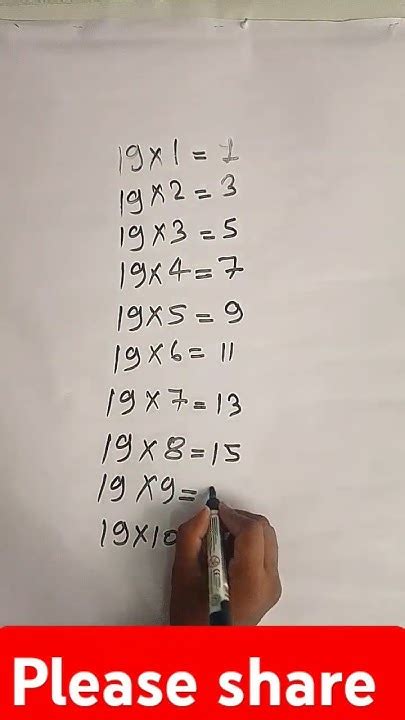 19×1=1
19×2=3
19×3=5
19×4=7
19×5=9
19×6=11
19×7=13
19×8=15
19×9=
19×10
Please share